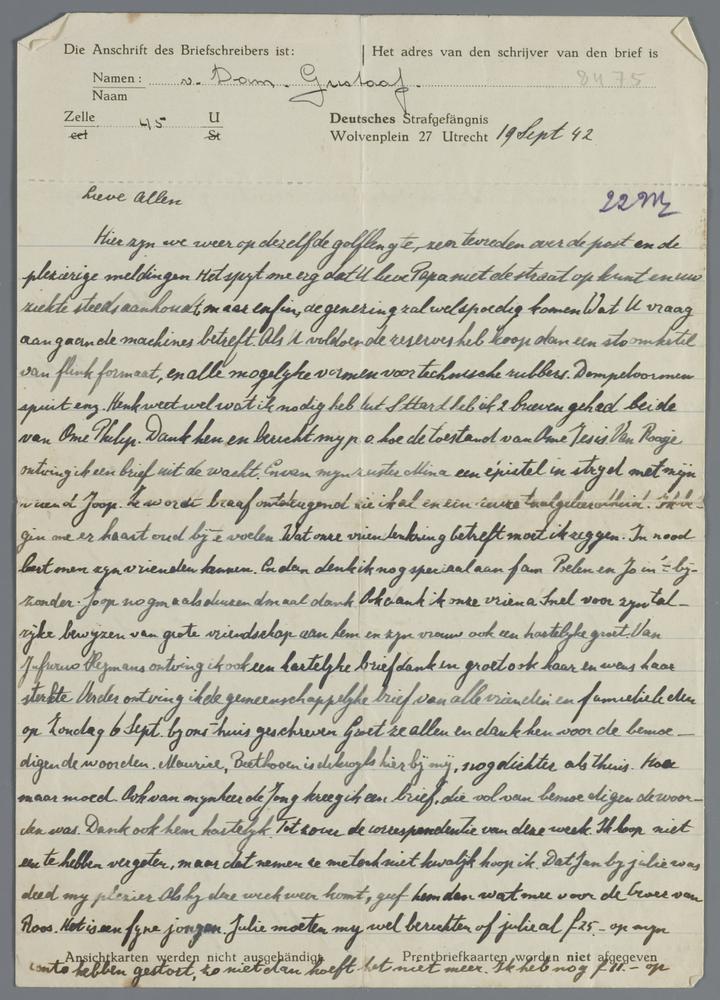 Die Anschrift des Briefschreibers ist: Het adres van den schrijver van den brief is
Namen: v. Dam. Gustaaf. 8475
Naam
Zelle 45 U Deutsches Strafgefängnis
cel St Wolvenplein 27 Utrecht 19 Sept 42
Lieve Allen
Hier zyn we weer op dezelfde golflengte, zeer tevreden over de post en de
plezierige meldingen Het spyt me erg dat U lieve Papa niet de straat op kunt en uw
ziekte steeds aanhoudt, maar enfin, de genezing zal wel spoedig komen Wat U vraag
aangaande machines betreft. Als U voldoende reserves heb koop dan een stoomketel
van flink formaat, en alle mogelyke vormen voor technische rubbers. Dompelvormen
spuit enz. Henk weet wel wat ik nodig heb heb ik 2 brieven gehad beide
van Ome Philip. Dank hen en bericht my p.o hoe de toestand van Ome Jesis. Van Roosje
ontving ik een brief uit de wacht. En van myn zuster Mina een epistel in stryd met mijn
vriend Joop. Ze wordt braaf zie ik al en een Ik be-
gin me er haast oud bij te voelen Wat onze vriendenkring betreft moet ik zeggen. In nood
leert men zyn vrienden kennen. En dan denk ik nog speciaal aan fam Poelen en Jo in 't by-
zonder. Joop nogmaals duizendmaal dank Ook dank ik onze vriend Snel voor zyn tal-
ryke bewyzen van grote vriendschap aan hem en zyn vrouw ook een hartelyke groet. Van
Jufvrouw Heymans ontving ik ook een hartelyke brief dank en groet ook haar en wens haar
sterkte Verder ontving ik de gemeenschappelyke brief van alle vrienden en familieleden
op Zondag 6 Sept. by ons thuis geschreven Groet ze allen en dank hen voor de bemoe-
digende woorden. Maurice, Beethoven is dikwyls hier bij mij, nog dichter als thuis. Hou
maar moed. Ook van mynheer de Jong kreeg ik een brief, die vol van bemoedigende woor-
den was. Dank ook hem hartelyk. Tot zover de correspondentie van deze week. Ik hoop niet
een te hebben vergeten, maar dat nemen ze me toch niet kwalijk hoop ik. Dat Jan by julie was
deed my plezier Als hy deze week weer komt, geef hem dan wat mee voor de broer van
Roos. Het is een fyne jongen. Julie moeten my wel berichten of julie al f25.- op myn
Ansichtkarten werden nicht ausgehändigt Prentbriefkaarten worden niet afgegeven
conto hebben gestort, zo niet dan hoeft het niet meer. Ik heb nog f11.- op